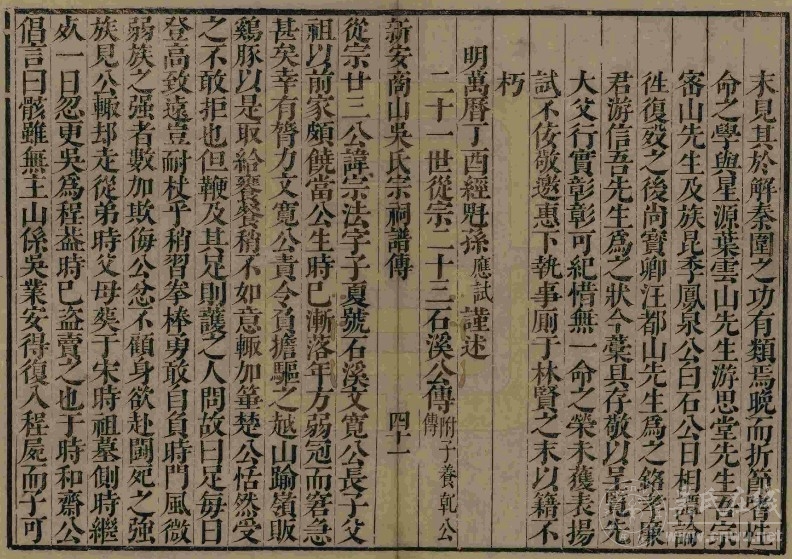 末見其於解秦圍之功有類焉晚而折節㫖性
命之學與星源葉雲山先生游思堂先生吾宗
密山先生及族昆季鳳泉公白石公日相譚論
徃復殁之後尚寶卿汪都山先生爲之銘孝廉
君游信吾先生爲之狀今藁具存敬以呈覽先
大父行實彰彰可紀惜無一命之榮未獲表揚
試不佞敬邀惠下執事厠于林賢之末以籍不
朽
明萬曆丁酉經魁孫應試謹述
二十一世從宗二十三石溪公傳附子養𠃵公傳
新安商山吳氏宗祠譜傳 四十一
從宗廿三公諱宗法字子夏號石溪文寬公長子父
祖以前家頗饒當公生時已漸落年方弱冠而窘急
甚矣幸有膂力文寬公責令負擔驅之越山踰嶺販
鷄豚以是取給饔飱稍不如意輙加箠楚公恬然受
之不敢拒也但鞭及其足則護之人問故曰足每日
登高致遠豈耐杖乎稍習拳棒勇敢自負時門風微
弱族之强者數加欺侮公忿不顧身欲赴鬭死之强
族見公輙却走從弟時父母葬于宋時祖墓側時繼
𠅤一日忽更吳爲程葢時已盜賣之也于時和齋公
倡言曰骸雖無主山係吳業安得復入程屍而子可